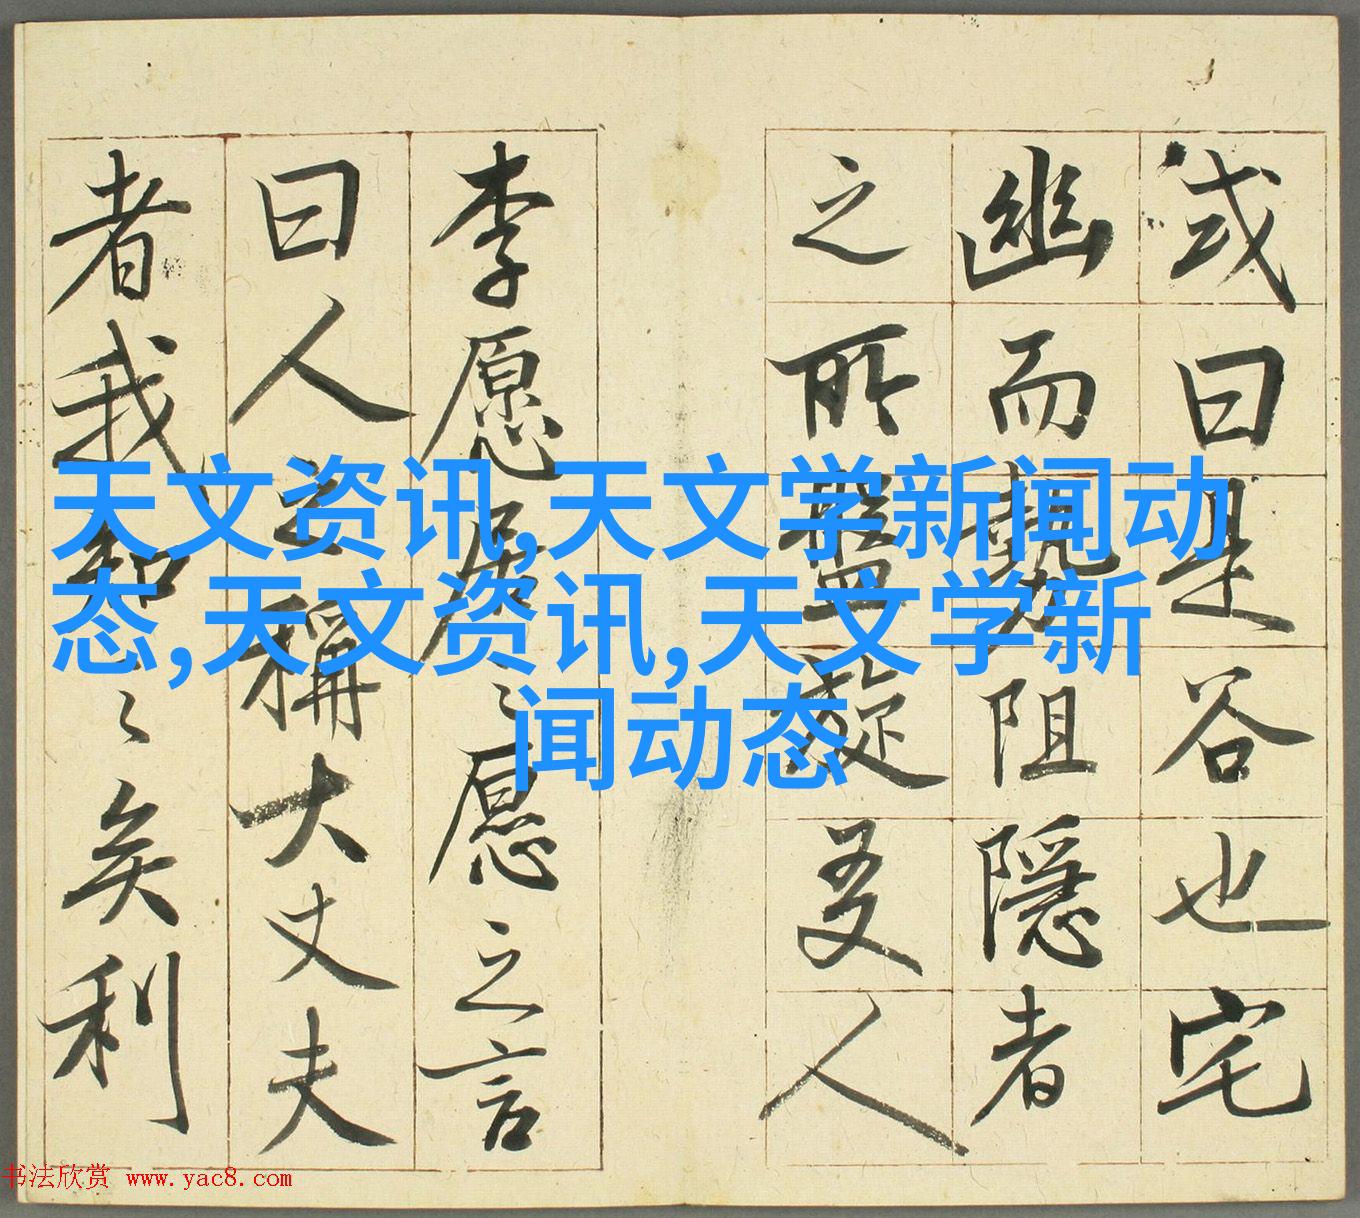 或曰是谷也宅
幽而勢阻隱者
之所盤旋友人
李愿居之愿之言
曰人之稱大丈夫
者我知之矣利
天文资讯,天文学新闻动
态,天文资讯,天文学新
闻动态
书法欣赏 www.yac8.com